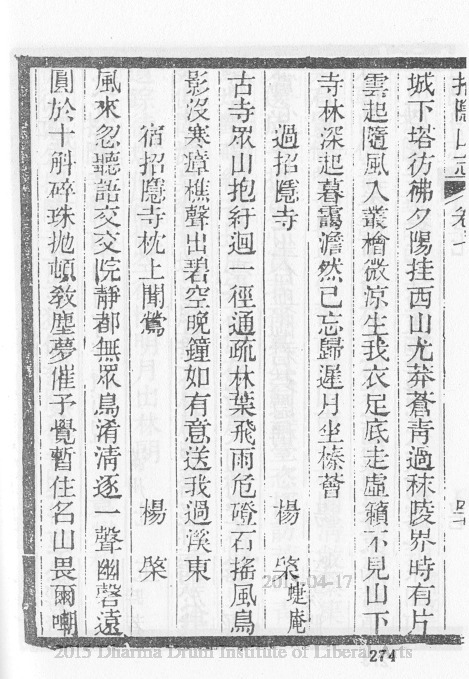 招隱山志 卷七
城下塔彷彿夕陽挂西山尤莽蒼靑過秣陵界時有片
雲起隨風入叢檜微涼生我衣足底走虛籟不見山下
寺林深起暮靄澹然已忘歸遲月坐榛薈
過招隱寺 楊棨蜨庵
古寺眾山抱紆迴一徑通疏林葉飛雨危磴石搖風鳥
影沒寒瀑樵聲出碧空晚鐘如有意送我過溪東
宿招隱寺枕上聞鶯 楊棨
風來忽聽語交交院靜都無眾鳥淆淸逐一聲幽磬遠
圓於十斛碎珠拋頓敎塵夢催予覺暫住名山畏爾嘲
2015-04-17
2015 Dharma Drum Institute of Liberal Arts
274